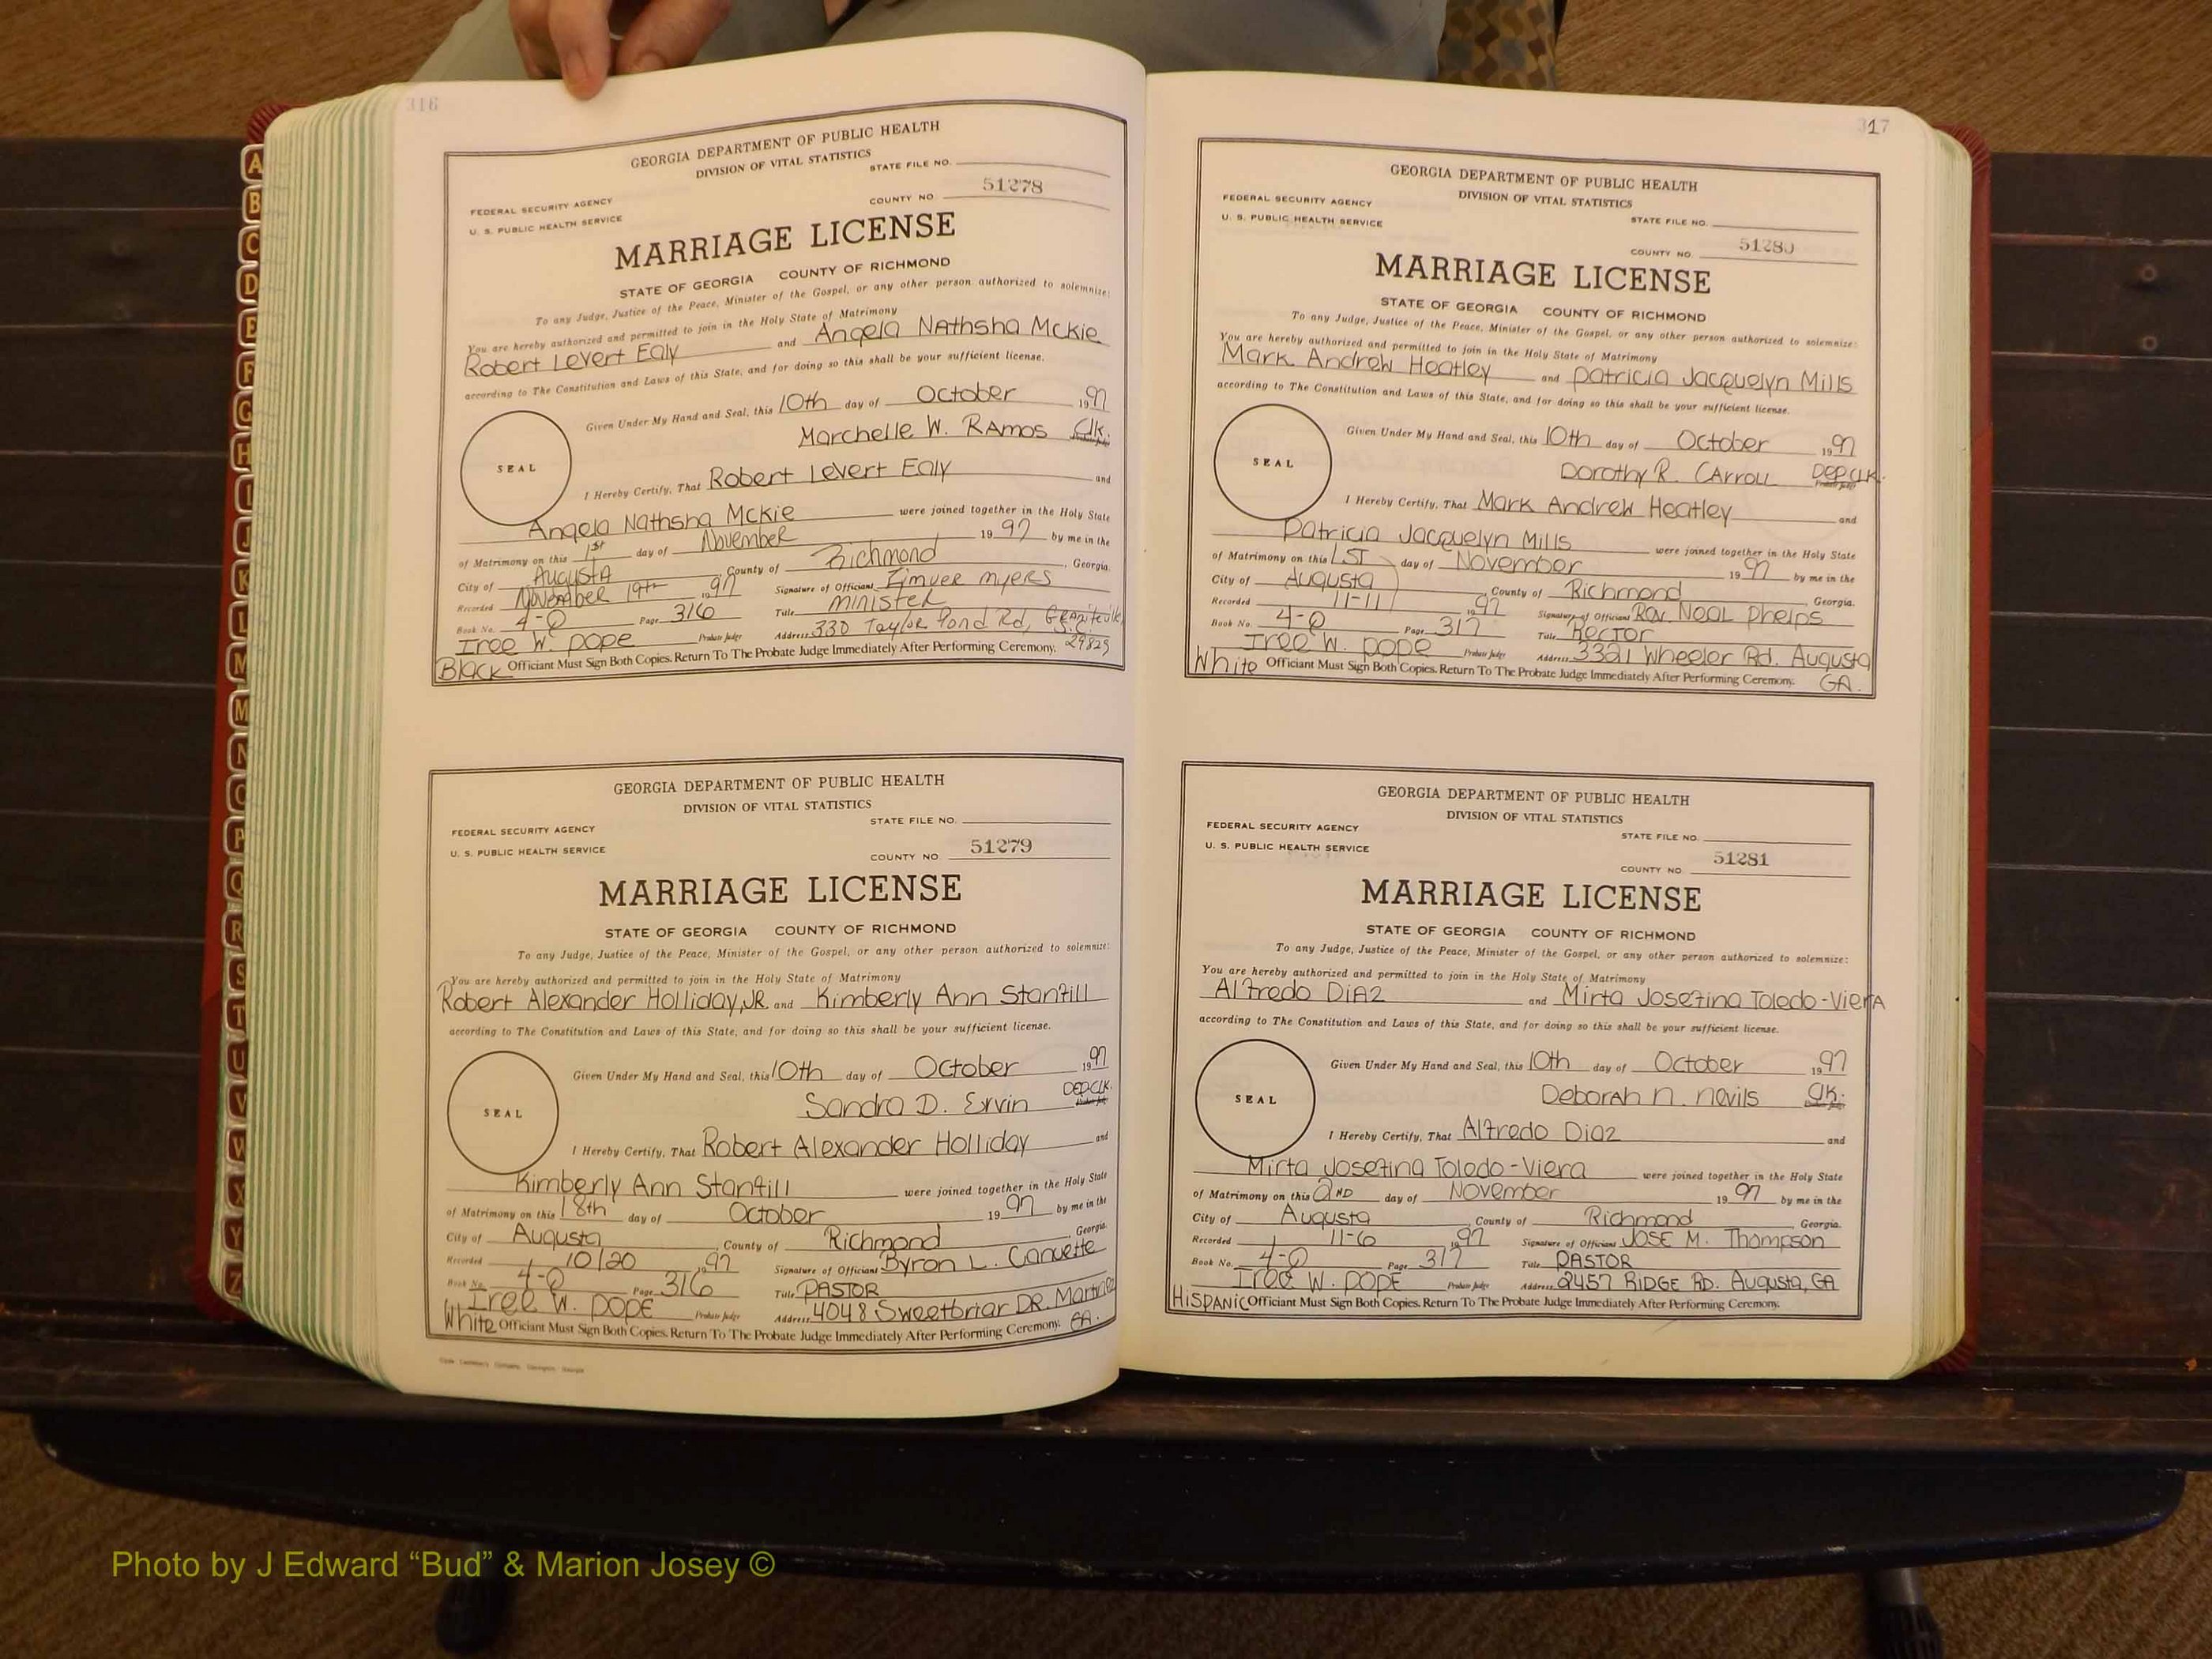 316
GEORGIA DEPARTMENT OF PUBLIC HEALTH
DIVISION OF VITAL STATISTICS
STATE FILE NO.
FEDERAL SECURITY AGENCY
COUNTY NO 51278
U. S. PUBLIC HEALTH SERVICE
MARRIAGE LICENSE
STATE OF GEORGIA COUNTY OF RICHMOND
To any Judge, Justice of the Peace, Minister of the Gospel, or any other person authorized to solemnize:
You are hereby authorized and permitted to join in the Holy State of Matrimony
Robert Levert Ealy and Angela Nathsha McKie
according to The Constitution and Laws of this State, and for doing so this shall be your sufficient license.
Given Under My Hand and Seal, this 10th day of October 1997
Marchelle W. RAmos Clk.
SEAL
I Hereby Certify, That Robert Levert Ealy and
Angela Nathsha McKie were joined together in the Holy State
of Matrimony on this 1st day of November 1997 by me in the
City of AugustA, County of Richmond, Georgia.
Recorded November 19th 1997 Signature of Officiant Zimver Myers
Book No. 4-Q Page 316 Title Minister
Iree W. Pope Probate Judge Address 330 Taylor Pond Rd, Graniteville S.C. 29829
Black Officiant Must Sign Both Copies. Return To The Probate Judge Immediately After Performing Ceremony.
GEORGIA DEPARTMENT OF PUBLIC HEALTH
DIVISION OF VITAL STATISTICS
STATE FILE NO.
FEDERAL SECURITY AGENCY
U. S. PUBLIC HEALTH SERVICE
COUNTY NO 51279
MARRIAGE LICENSE
STATE OF GEORGIA COUNTY OF RICHMOND
To any Judge, Justice of the Peace, Minister of the Gospel, or any other person authorized to solemnize:
You are hereby authorized and permitted to join in the Holy State of Matrimony
Robert Alexander Holliday, JR. and Kimberly Ann Stanfill
according to The Constitution and Laws of this State, and for doing so this shall be your sufficient license.
Given Under My Hand and Seal, this 10th day of October 1997
Sandra D. Ervin DEP.CLK.
SEAL
I Hereby Certify, That Robert Alexander Holliday and
Kimberly Ann Stanfill were joined together in the Holy State
of Matrimony on this 18th day of October 1997 by me in the
City of Augusta, County of Richmond, Georgia.
Recorded 10/20 1997 Signature of Officiant Byron L. Canuette
Book No. 4-Q Page 316 Title PASTOR
Iree W. POPE Probate Judge Address 4048 Sweetbriar DR. Martinez GA.
White Officiant Must Sign Both Copies. Return To The Probate Judge Immediately After Performing Ceremony.
317
GEORGIA DEPARTMENT OF PUBLIC HEALTH
DIVISION OF VITAL STATISTICS
FEDERAL SECURITY AGENCY
U. S. PUBLIC HEALTH SERVICE
STATE FILE NO.
COUNTY NO. 51280
MARRIAGE LICENSE
STATE OF GEORGIA COUNTY OF RICHMOND
To any Judge, Justice of the Peace, Minister of the Gospel, or any other person authorized to solemnize:
You are hereby authorized and permitted to join in the Holy State of Matrimony
Mark Andrew Heatley and Patricia Jacquelyn Mills
according to The Constitution and Laws of this State, and for doing so this shall be your sufficient license.
Given Under My Hand and Seal, this 10th day of October 1997
Dorothy R. CArroll DEP.CLK.
SEAL
I Hereby Certify, That Mark Andrew Heatley and
Patricia Jacquelyn Mills were joined together in the Holy State
of Matrimony on this 1ST day of November 1997 by me in the
City of Augusta, County of Richmond, Georgia.
Recorded 11-11 1997 Signature of Officiant Rev. NEAL Phelps
Book No. 4-Q Page 317 Title Rector
Iree W. Pope Probate Judge Address 3321 Wheeler Rd. Augusta GA.
White Officiant Must Sign Both Copies. Return To The Probate Judge Immediately After Performing Ceremony.
GEORGIA DEPARTMENT OF PUBLIC HEALTH
DIVISION OF VITAL STATISTICS
FEDERAL SECURITY AGENCY
STATE FILE NO.
U. S. PUBLIC HEALTH SERVICE
COUNTY NO. 51281
MARRIAGE LICENSE
STATE OF GEORGIA COUNTY OF RICHMOND
To any Judge, Justice of the Peace, Minister of the Gospel, or any other person authorized to solemnize:
You are hereby authorized and permitted to join in the Holy State of Matrimony
Alfredo DiAz and Mirta Josefina Toledo-VierA
according to The Constitution and Laws of this State, and for doing so this shall be your sufficient license.
Given Under My Hand and Seal, this 10th day of October 1997
Deborah N. Nevils Clk.
SEAL
I Hereby Certify, That Alfredo Diaz and
Mirta Josefina Toledo-Viera were joined together in the Holy State
of Matrimony on this 2ND day of November 1997 by me in the
City of Augusta, County of Richmond, Georgia.
Recorded 11-6 1997 Signature of Officiant JOSE M. Thompson
Book No. 4-Q Page 317 Title PASTOR
Iree W. POPE Probate Judge Address 2457 RIDGE RD. Augusta, GA
HISPANIC Officiant Must Sign Both Copies. Return To The Probate Judge Immediately After Performing Ceremony.
A
B
C
D
E
F
G
H
I
J
K
L
M
M
N
O
P
Q
R
S
T
U
V
W
X
Y
Z
Photo by J Edward “Bud” & Marion Josey ©